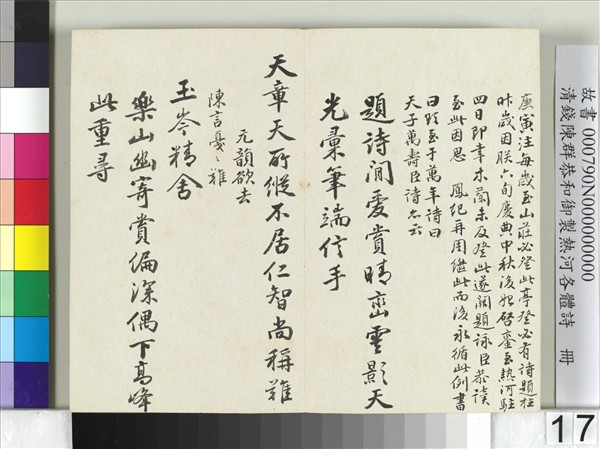 庚寅注每歲至山莊必登此亭登必有詩題柱
昨歲因朕六旬慶典中秋後始啓鑾至熱河駐
四日即幸木蘭未及登此遂闕題詠臣恭讀
至此因思 鳳紀再周繼此而後永循此例書
曰欲至于萬年詩曰
天子萬壽臣詩亦云
題詩澗愛賞晴巒雲影天
光彙筆端信手
天章天所縱不居仁智尚稱難
元韻欲去
陳言戛戛難
玉岑精舍
樂山幽寄賞偏深偶下高峰
此重尋
故書 000790N000000000
清錢陳群恭和御製熱河各體詩 冊
17